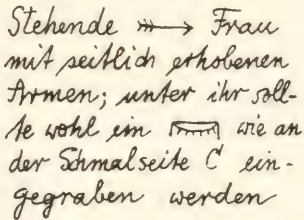 Stehende → Frau
mit seitlich erhobenen
Armen; unter ihr soll-
te wohl ein wie an
der Schmalseite C ein-
gegraben werden